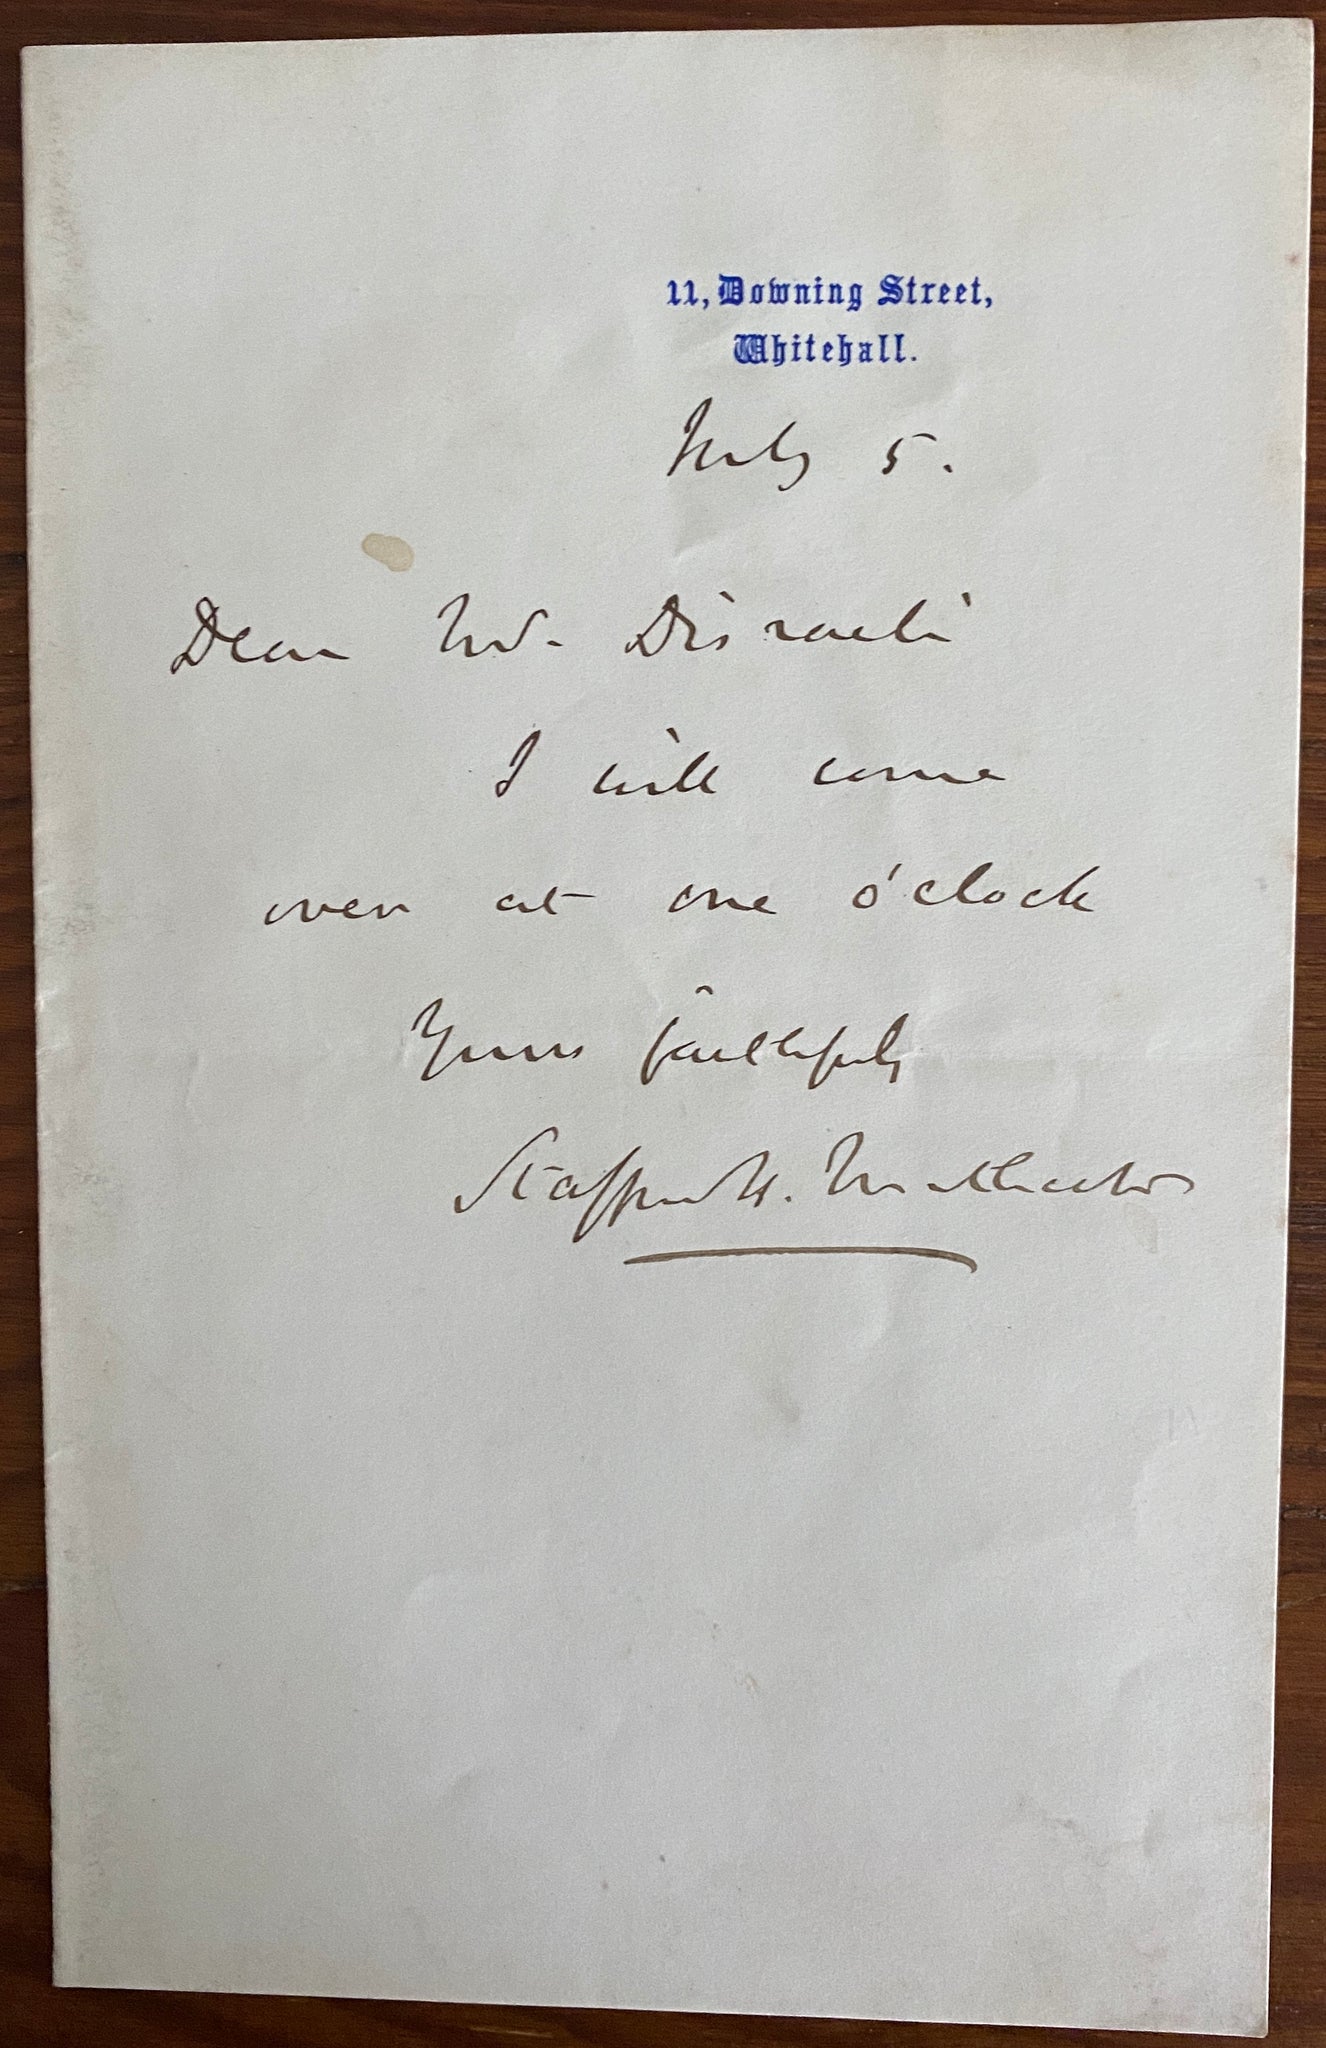 11, Downing Street,
Whitehall.
July 5.
Dear Mr. Disraeli
I will come
over at one o'clock
Yours faithfully
Stafford H. Northcote